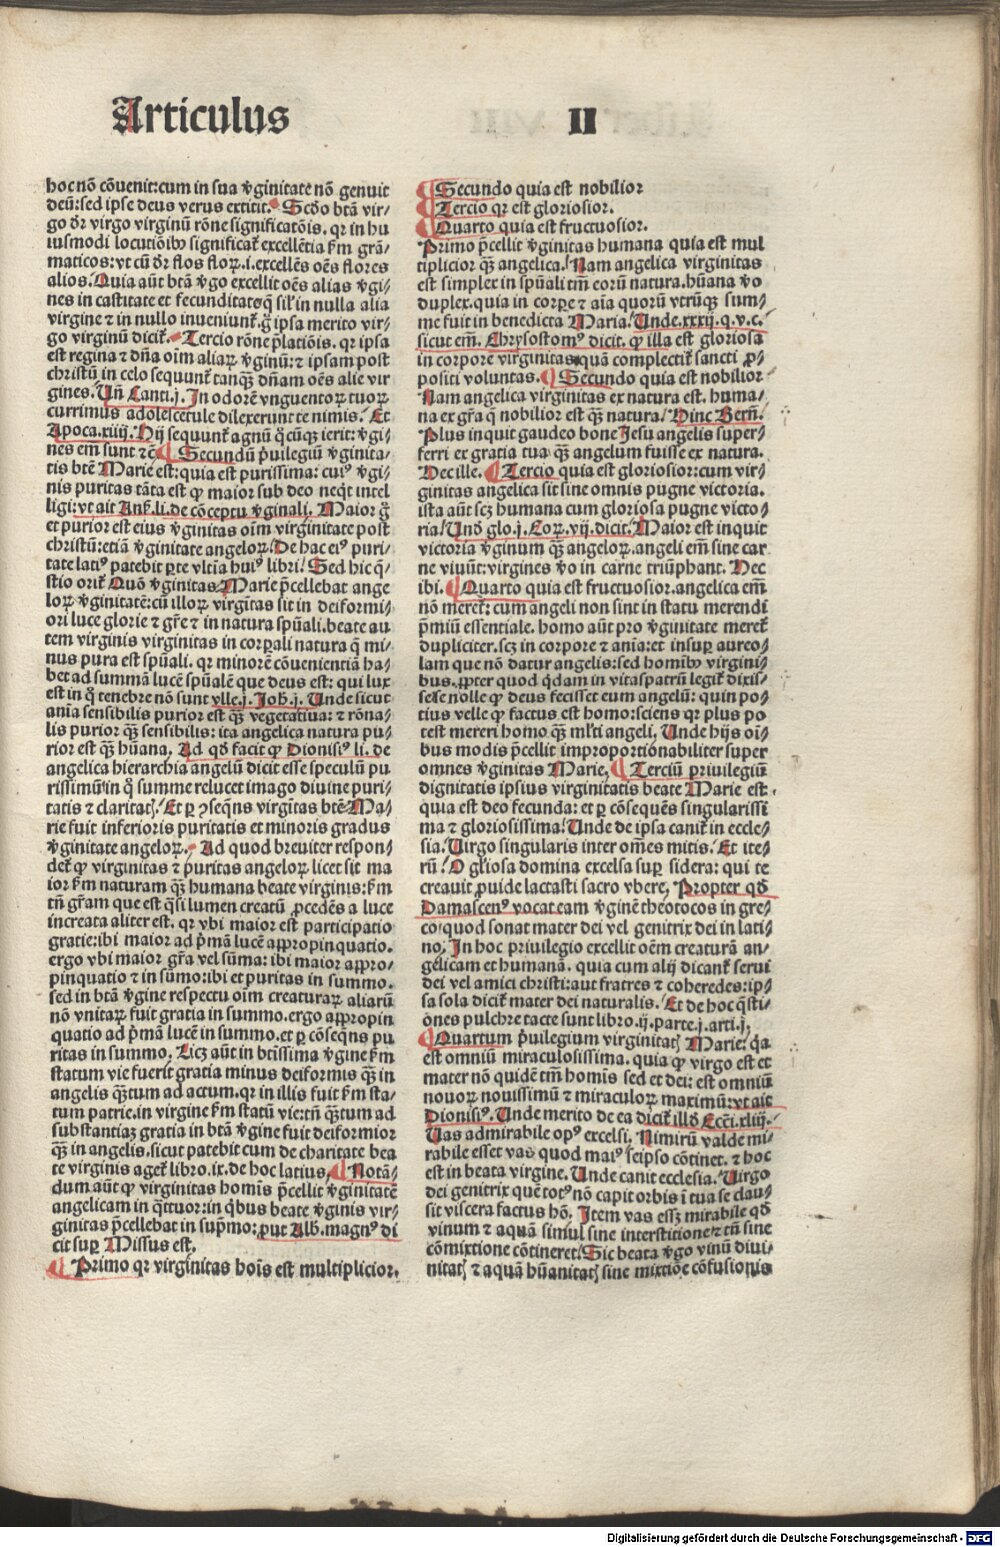 Articulus II
hoc nō cōuenit: cum in sua v̄ginitate nō genuit
deū: sed ipse deus verus extitit. Scd̄o btā vir⸗
go dr̄ virgo virginū rōne significatōis. qr in hu
iusmodi locutiōib⁹ significat̄ excellētia fm̄ grā⸗
maticos: vt cū dr̄ flos floꝝ .i. excellēs oēs flores
alios. Quia aūt btā v̄go excellit oēs alias v̄gi⸗
nes in castitate et fecunditate q̄ sil' in nulla alia
virgine ⁊ in nullo inueniunt̄. g̊ ipsa merito vir⸗
go virginū dicit̄. Tercio rōne p̄latiōis. qr ipsa
est regina ⁊ dn̄a oīm aliaꝝ v̄ginū: ⁊ ipsam post
christū in celo sequunt̄ tanqꝫ dn̄am oēs alie vir
gines. Un̄ Canti.j. In odorē vnguentoꝝ tuoꝝ
currimus adolescētule dilexerunt te nimis. Et
Apoca.xiiij. Hij sequunt̄ agnū q̊cūqꝫ ierit: v̄gi⸗
nes em̄ sunt ⁊cē ¶ Secundū p̄uilegiū v̄ginita⸗
tis btē Marie est: quia est purissima: cui⁹ v̄gi⸗
nis puritas tāta est ꝙ maior sub deo neq̇t intel
ligi: vt ait Ans̄.li.de cōceptu v̄ginali. Maior g̊
et purior est eius v̄ginitas oīm virginitate post
christū: etiā v̄ginitate angeloꝝ. De hac ei⁹ puri⸗
tate lati⁹ patebit ꝑte vltīa hui⁹ libri. Sed hic q̄⸗
stio orit̄ Quō v̄ginitas Marie p̄cellebat ange
loꝝ v̄ginitatē: cū illoꝝ virgītas sit in deiformi⸗
ori luce glorie ⁊ grē ⁊ in natura spūali. beate au
tem virginis virginitas in corꝑali natura q̄ mi⸗
nus pura est spūali. qr minorē cōuenientiā ha⸗
bet ad summā lucē spūalē que deus est: qui lux
est in q̊ tenebre nō sunt vlle.j. Joh̄.j. Unde sicut
anīa sensibilis purior est qꝫ vegetatiua: ⁊ rōna⸗
lis purior qꝫ sensibilis: ita angelica natura pu⸗
rior est qꝫ hūana. Ad qd̄ facit ꝙ Dionisi⁹ li. de
angelica hierarchia angelū dicit esse speculū pu
rissimū in q̊ summe relucet imago diuine puri⸗
tatis ⁊ claritatꝭ. Et ꝑ ꝯseq̄ns virgītas btē Ma⸗
rie fuit inferioris puritatis et minoris gradus
v̄ginitate angeloꝝ. Ad quod breuiter respon⸗
det̄ ꝙ virginitas ⁊ puritas angeloꝝ licet sit ma
ior fm̄ naturam qꝫ humana beate virginis: fm̄
tn̄ grām que est q̄si lumen creatū ꝓcedēs a luce
increata aliter est. qr vbi maior est participatio
gratie: ibi maior ad p̄mā lucē appropinquatio.
ergo vbi maior grā vel sūma: ibi maior appro⸗
pinquatio ⁊ in sūmo: ibi et puritas in summo.
sed in btā v̄gine respectu oīm creaturaꝝ aliarū
nō vnitaꝝ fuit gratia in summo. ergo appropin
quatio ad p̄mā lucē in summo. et ꝑ cōseq̄ns pu
ritas in summo. Licꝫ aūt in btīssima v̄gine fm̄
statum vie fuerit gratia minus deiformis qꝫ in
angelis qꝫtum ad actum. qr in illis fuit fm̄ sta⸗
tum patrie. in virgine fm̄ statū vie: tn̄ qꝫtum ad
substantiaꝫ gratia in btā v̄gine fuit deiformior
qꝫ in angelis. sicut patebit cum de charitate bea
te virginis aget̄ libro.ix. de hoc latius. ¶ Notā⸗
dum aūt ꝙ virginitas homīs p̄cellit v̄ginitatē
angelicam in q̇ttuor: in q̇bus beate v̄ginis vir⸗
ginitas p̄cellebat in sup̄mo: ꝓut Alb̄. magn⁹ di
cit suꝑ Missus est.
¶ Primo qr virginitas hoīs est multiplicior.
¶ Secundo quia est nobilior
¶ Tercio qr est gloriosior.
¶ Quarto quia est fructuosior.
Primo p̄cellit v̄ginitas humana quia est mul
tiplicior qꝫ angelica. Nam angelica virginitas
est simplex in spūali tm̄ eorū natura. hūana v̊o
duplex. quia in corꝑe ⁊ aīa quorū vtrūqꝫ sum⸗
me fuit in benedicta Maria. Unde.xxxij.q.v.c.
sicut em̄. Chrysostom⁹ dicit. ꝙ illa est gloriosa
in corpore virginitas quā complectit̄ sancti ꝓ⸗
positi voluntas. ¶ Secundo quia est nobilior
Nam angelica virginitas ex natura est. huma⸗
na ex grā q̄ nobilior est qꝫ natura. Hinc Bern̄.
Plus inquit gaudeo bone Jesu angelis super⸗
ferri ex gratia tua qꝫ angelum fuisse ex natura.
Hec ille. ¶ Tercio quia est gloriosior: cum vir⸗
ginitas angelica sit sine omnis pugne victoria.
ista aūt scꝫ humana cum gloriosa pugne victo⸗
ria. Un̄ glo.j. Coꝝ.vij. dicit. Maior est inquit
victoria v̄ginum qꝫ angeloꝝ. angeli em̄ sine car
ne viuūt: virgines v̊o in carne triūphant. Hec
ibi. ¶ Quarto quia est fructuosior. angelica em̄
nō meret̄: cum angeli non sint in statu merendi
p̄miū essentiale. homo aūt pro v̄ginitate meret̄
dupliciter. scꝫ in corpore ⁊ anīa: et insuꝑ aureo⸗
lam que nō datur angelis: sed homīb⁹ virgini⸗
bus. ꝓpter quod q̇dam in vitaspatrū legit̄ dixis⸗
se se nolle ꝙ deus fecisset eum angelū: quin po⸗
tius velle ꝙ factus est homo: sciens qr plus po
test mereri homo qꝫ ml̄ti angeli. Unde hijs oī⸗
bus modis p̄cellit improportionabiliter super
omnes v̄ginitas Marie. ¶ Terciū priuilegiū
dignitatis ipsius virginitatis beate Marie est.
quia est deo fecunda: et ꝑ cōsequēs singularissi
ma ⁊ gloriosissima. Unde de ipsa canit̄ in eccle⸗
sia. Uirgo singularis inter om̄es mitis. Et ite⸗
rū. O gl̄iosa domina excelsa suꝑ sidera: qui te
creauit ꝓuide lactasti sacro vbere. Propter qd̄
Damascen⁹ vocat eam v̄ginē theotocos in gre⸗
co: quod sonat mater dei vel genitrix dei in lati⸗
no. In hoc priuilegio excellit oēm creaturā an⸗
gelicam et humanā. quia cum alij dicant̄ serui
dei vel amici christi: aut fratres ⁊ coheredes: ip⸗
sa sola dicit̄ mater dei naturalis. Et de hoc q̄sti⸗
ōnes pulchre tacte sunt libro.ij. parte.j. arti.j.
¶ Quartum p̄uilegium virginitatꝭ Marie: q̇a
est omniū miraculosissima. quia ꝙ virgo est et
mater nō quidē tm̄ homīs sed et dei: est omniū
nouoꝝ nouissimū ⁊ miraculoꝝ maximū: vt ait
Dionisi⁹. Unde merito de ea dicit̄ illd̄ Ecci.xliij.
Uas admirabile op⁹ excelsi. Nimirū valde mi⸗
rabile esset vas quod mai⁹ seipso cōtinet. ⁊ hoc
est in beata virgine. Unde canit ecclesia. Uirgo
dei genitrix quē tot⁹ nō capit orbis ī tua se clau⸗
sit viscera factus hō. Item vas essꝫ mirabile qd̄
vinum ⁊ aquā simul sine interstitione ⁊ tn̄ sine
cōmixtione cōtineret. Sic beata v̄go vinū diui⸗
nitatꝭ ⁊ aquā hūanitatꝭ sine mixtiōe cōfusionis
Digitalisierung gefördert durch die Deutsche Forschungsgemeinschaft - DFG